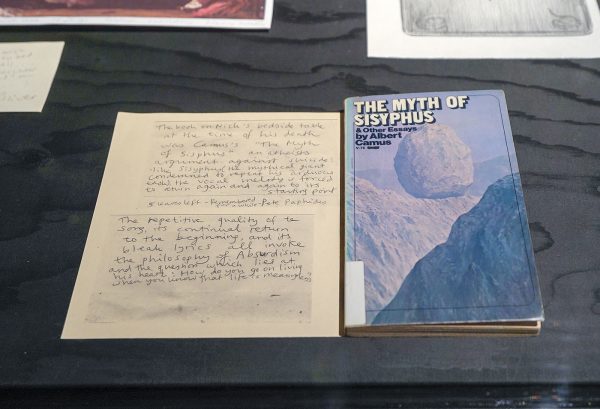 The book on Nick's bedside table
at the time of his death
was Camus's "The Myth
of Sisyphus" an atheists
argument against suicide:
like Sisyphus the mythical giant
condemned to repeat his arduous
the vocal melody is forced
to return again and again to its
starting point
5 Pete Paphides
The repetitive quality of te
song, its continual return
to the beginning, and its
bleak lyrics all invoke
the philosophy of Absurdism
and the question which lies at
his heart: How do you go on living
when you know that life is meaningless
THE MYTH OF
SISYPHUS
& Other Essays
by Albert
Camus